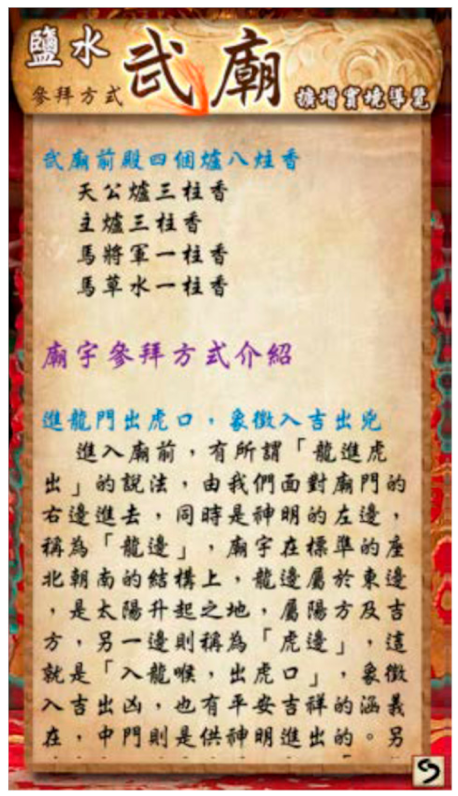 鹽水
武廟
參拜方式
擴增實境導覽
武廟前殿四個爐八炷香
天公爐三柱香
主爐三柱香
馬將軍一柱香
馬草水一柱香
廟宇參拜方式介紹
進龍門出虎口,象徵入吉出兇
進入廟前,有所謂「龍進虎
出」的說法,由我們面對廟門的
右邊進去,同時是神明的左邊,
稱為「龍邊」,廟宇在標準的座
北朝南的結構上,龍邊屬於東邊
,是太陽升起之地,屬陽方及吉
方,另一邊則稱為「虎邊」,這
就是「入龍喉,出虎口」,象徵
入吉出凶,也有平安吉祥的涵義
在,中門則是供神明進出的。另